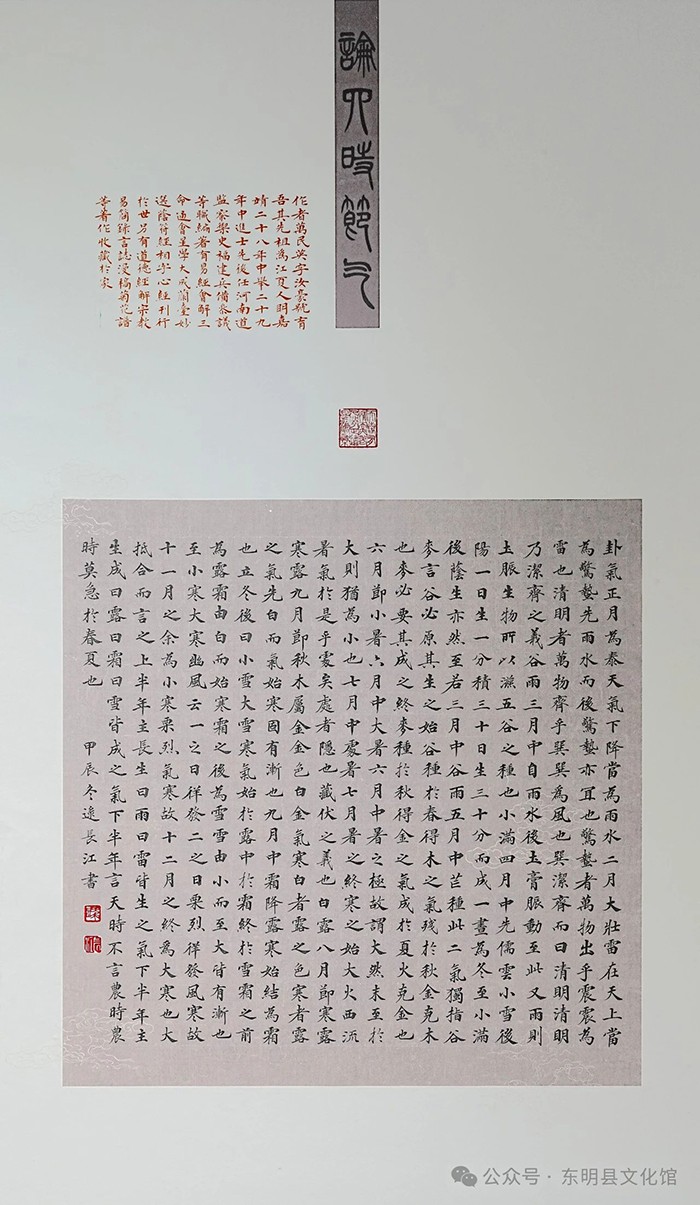 論四時節氣
作者萬民英字汝豪號育
吾其先祖為江夏人明嘉
靖二十八年中舉二十九
年中進士先後任河南道
監察禦史福建兵備參議
等職編著有易經會解三
命通會星學大成蘭臺妙
選陰符經相字心經刊行
於世另有道德經解宗教
易簡錄言誌漫稿菊花譜
等著作收藏於家
卦氣正月為泰天氣下降當為雨水二月大壯雷在天上當
為驚蟄先雨水而後驚蟄亦宜也驚蟄者萬物出乎震震為
雷也清明者萬物齊乎巽巽為風也巽潔齊而曰清明清明
乃潔齊之義谷雨三月中自雨水後土膏脈動至此又雨則
土脈生物所以滋五谷之種也小滿四月中先儒雲小雪後
陽一日生一分積三十日生三十分而成一晝為冬至小滿
後陰生亦然至若三月中谷雨五月中芒種此二氣獨指谷
麥言谷必原其生之始谷種於春得木之氣殘於秋金克木
也麥必要其成之終麥種於秋得金之氣成於夏火克金也
六月節小暑六月中大暑六月中暑之極故謂大然未至於
大則猶為小也七月中處暑七月暑之終寒之始大火西流
暑氣於是乎處矣處者隱也藏伏之義也白露八月節寒露
寒露九月節秋木屬金金色白金氣寒白者露之色寒者露
之氣先白而氣始寒固有漸也九月中霜降露寒始結為霜
也立冬後曰小雪大雪寒氣始於露中於霜終於雪霜之前
為露霜由白而始寒霜之後為雪雪由小而至大皆有漸也
至小寒大寒豳風云一之日觱發二之日栗烈觱發風寒故
十一月之余為小寒栗烈氣寒故十二月之終為大寒也大
抵合而言之上半年主長生曰雨曰雷皆生之氣下半年主
生成曰露曰霜曰雪皆成之氣下半年言天時不言農時農
時莫急於春夏也
甲辰冬逸長江書
公众号·东明县文化馆